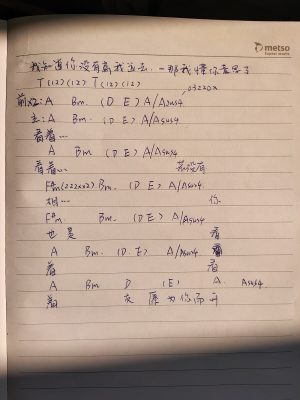 metso
我知道你没有离我远去. 一那我懂你意思了
T(12)(12) T(12)(12)
x03220x
前奏: A Bm. (D E) A/Asus4
主: A Bm. (D E) A/Asus4.
看着…
A Bm (D E) A/Asus4
看着… 若没有
F#m(222xx2) Bm. (D E) A/Asus4
相… 你
F#m Bm. (D E) A/Asus4
也是 看
A Bm. (D. E) A/Asus4.
着 看
A Bm D (E) A. Asus4.
着 灰 为你而开